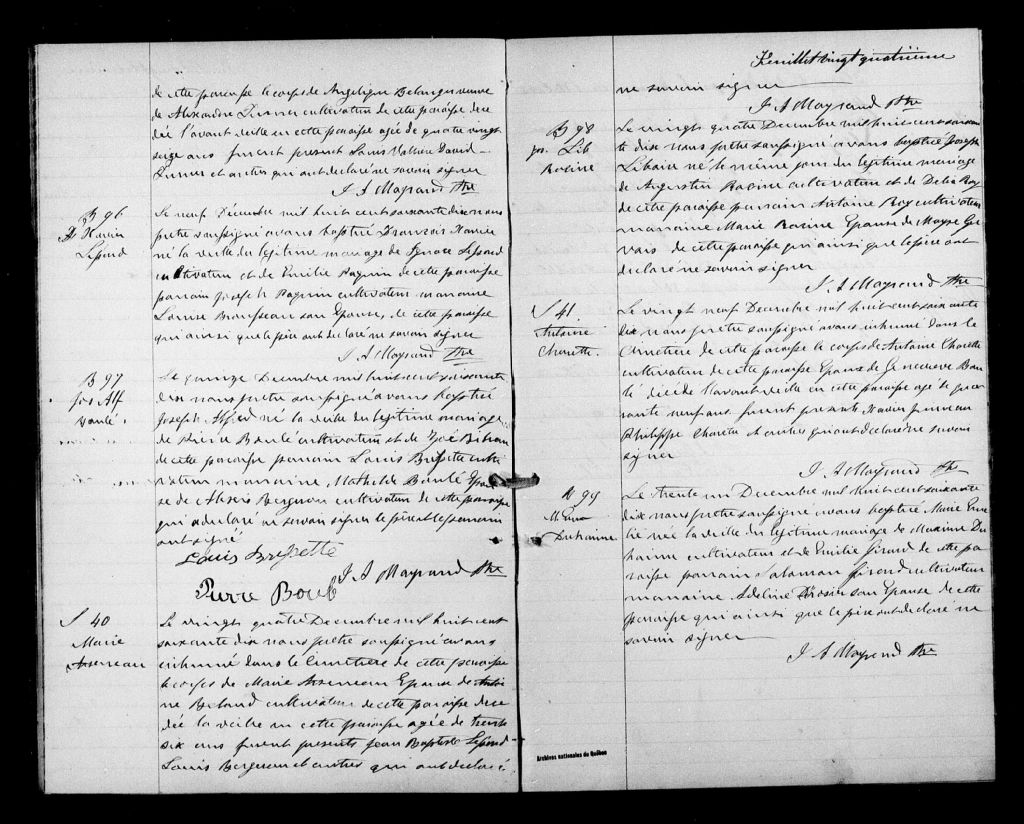 de cette paroisse le corps de Angelique Belanger veuve
de Alexandre cultivateur de cette paroisse dece
dée l'avant veille en cette paroisse agée de quatre vingt
seize ans furent present Louis David
et autres qui ont declaré ne savoir signer
J A Maysrand Ptre
B 96
Xavier
Le neuf Décembre mil huit cent soixante dix nous
prêtre soussigné avons baptisé François Xavier
né la veille du légitime mariage de Ignace
cultivateur et de Emilie Paquin de cette paroisse
parrain Joseph Paquin cultivateur marraine
Louise son Epouse, de cette paroisse
qui ainsi que le père ont declaré ne savoir signer
J A Maysrand Ptre
B 97
Jos Alf
Boulé
Le quinze Decembre mil huit cent soixante
dix nous prêtre soussigné avons baptisé
Joseph Alfred né la veille du legitime mariage
de Pierre Boulé cultivateur et de Zoé
de cette paroisse parrain Louis Brissette culti
vateur marraine Mathilde Boulé Epou
se de Alexis Bergeron cultivateur de cette paroisse
qui a declaré ne savoir signer le père et le parrain
ont signé
Louis Brissette
Pierre Boulé
J A Maysrand Ptre
S 40
Marie
Arseneau
Le vingt quatre Decembre mil huit cent
soixante dix nous prêtre soussigné avons
inhumé dans le Cimetière de cette paroisse
le corps de Marie Arseneau Epouse de Antoi
ne cultivateur de cette paroisse dece
dée la veille en cette paroisse agée de trente
six ans furent presents Jean Baptiste
Louis Bergeron et autres qui ont declaré
Feuillet vingt quatrième
ne savoir signer
J A Maysrand Ptre
B 98
Jos. Lib
Racine
Le vingt quatre Decembre mil huit cent soixan
te dix nous prêtre soussigné avons baptisé Joseph
Libaire né le même jour du legitime mariage
de Augustin Racine cultivateur et de Delia Roy
de cette paroisse parrain Antoine Roy cultivateur
marraine Marie Racine Epouse de Moyse Ger
vais de cette paroisse qui ainsi que le père ont
declaré ne savoir signer
J. A Maysrand Ptre
S 41.
Antoine
Charette.
Le vingt neuf Decembre mil huit cent soixante
dix nous prêtre soussigné avons inhumé dans le
Cimetière de cette paroisse le corps de Antoine Charette
cultivateur de cette paroisse Epoux de Genevieve Bou
lé décédé l'avant veille en cette paroisse agé de qua
rante neuf ans furent presents Xavier
Philippe Charette et autres qui ont declaré ne savoir
signer
J. A Maysrand Ptre
B 99
M. Emma
Duhaime
Le trente un Decembre mil huit cent soixante
dix nous prêtre soussigné avons baptisé Marie
née la veille du legitime mariage de Maxime Du
haime cultivateur et de Emilie Girard de cette pa
roisse parrain Salomon Girard cultivateur
marraine Adeline son Epouse de cette
paroisse qui ainsi que le père ont declaré ne
savoir signer
J A Maysrand Ptre
Archives nationales du Québec